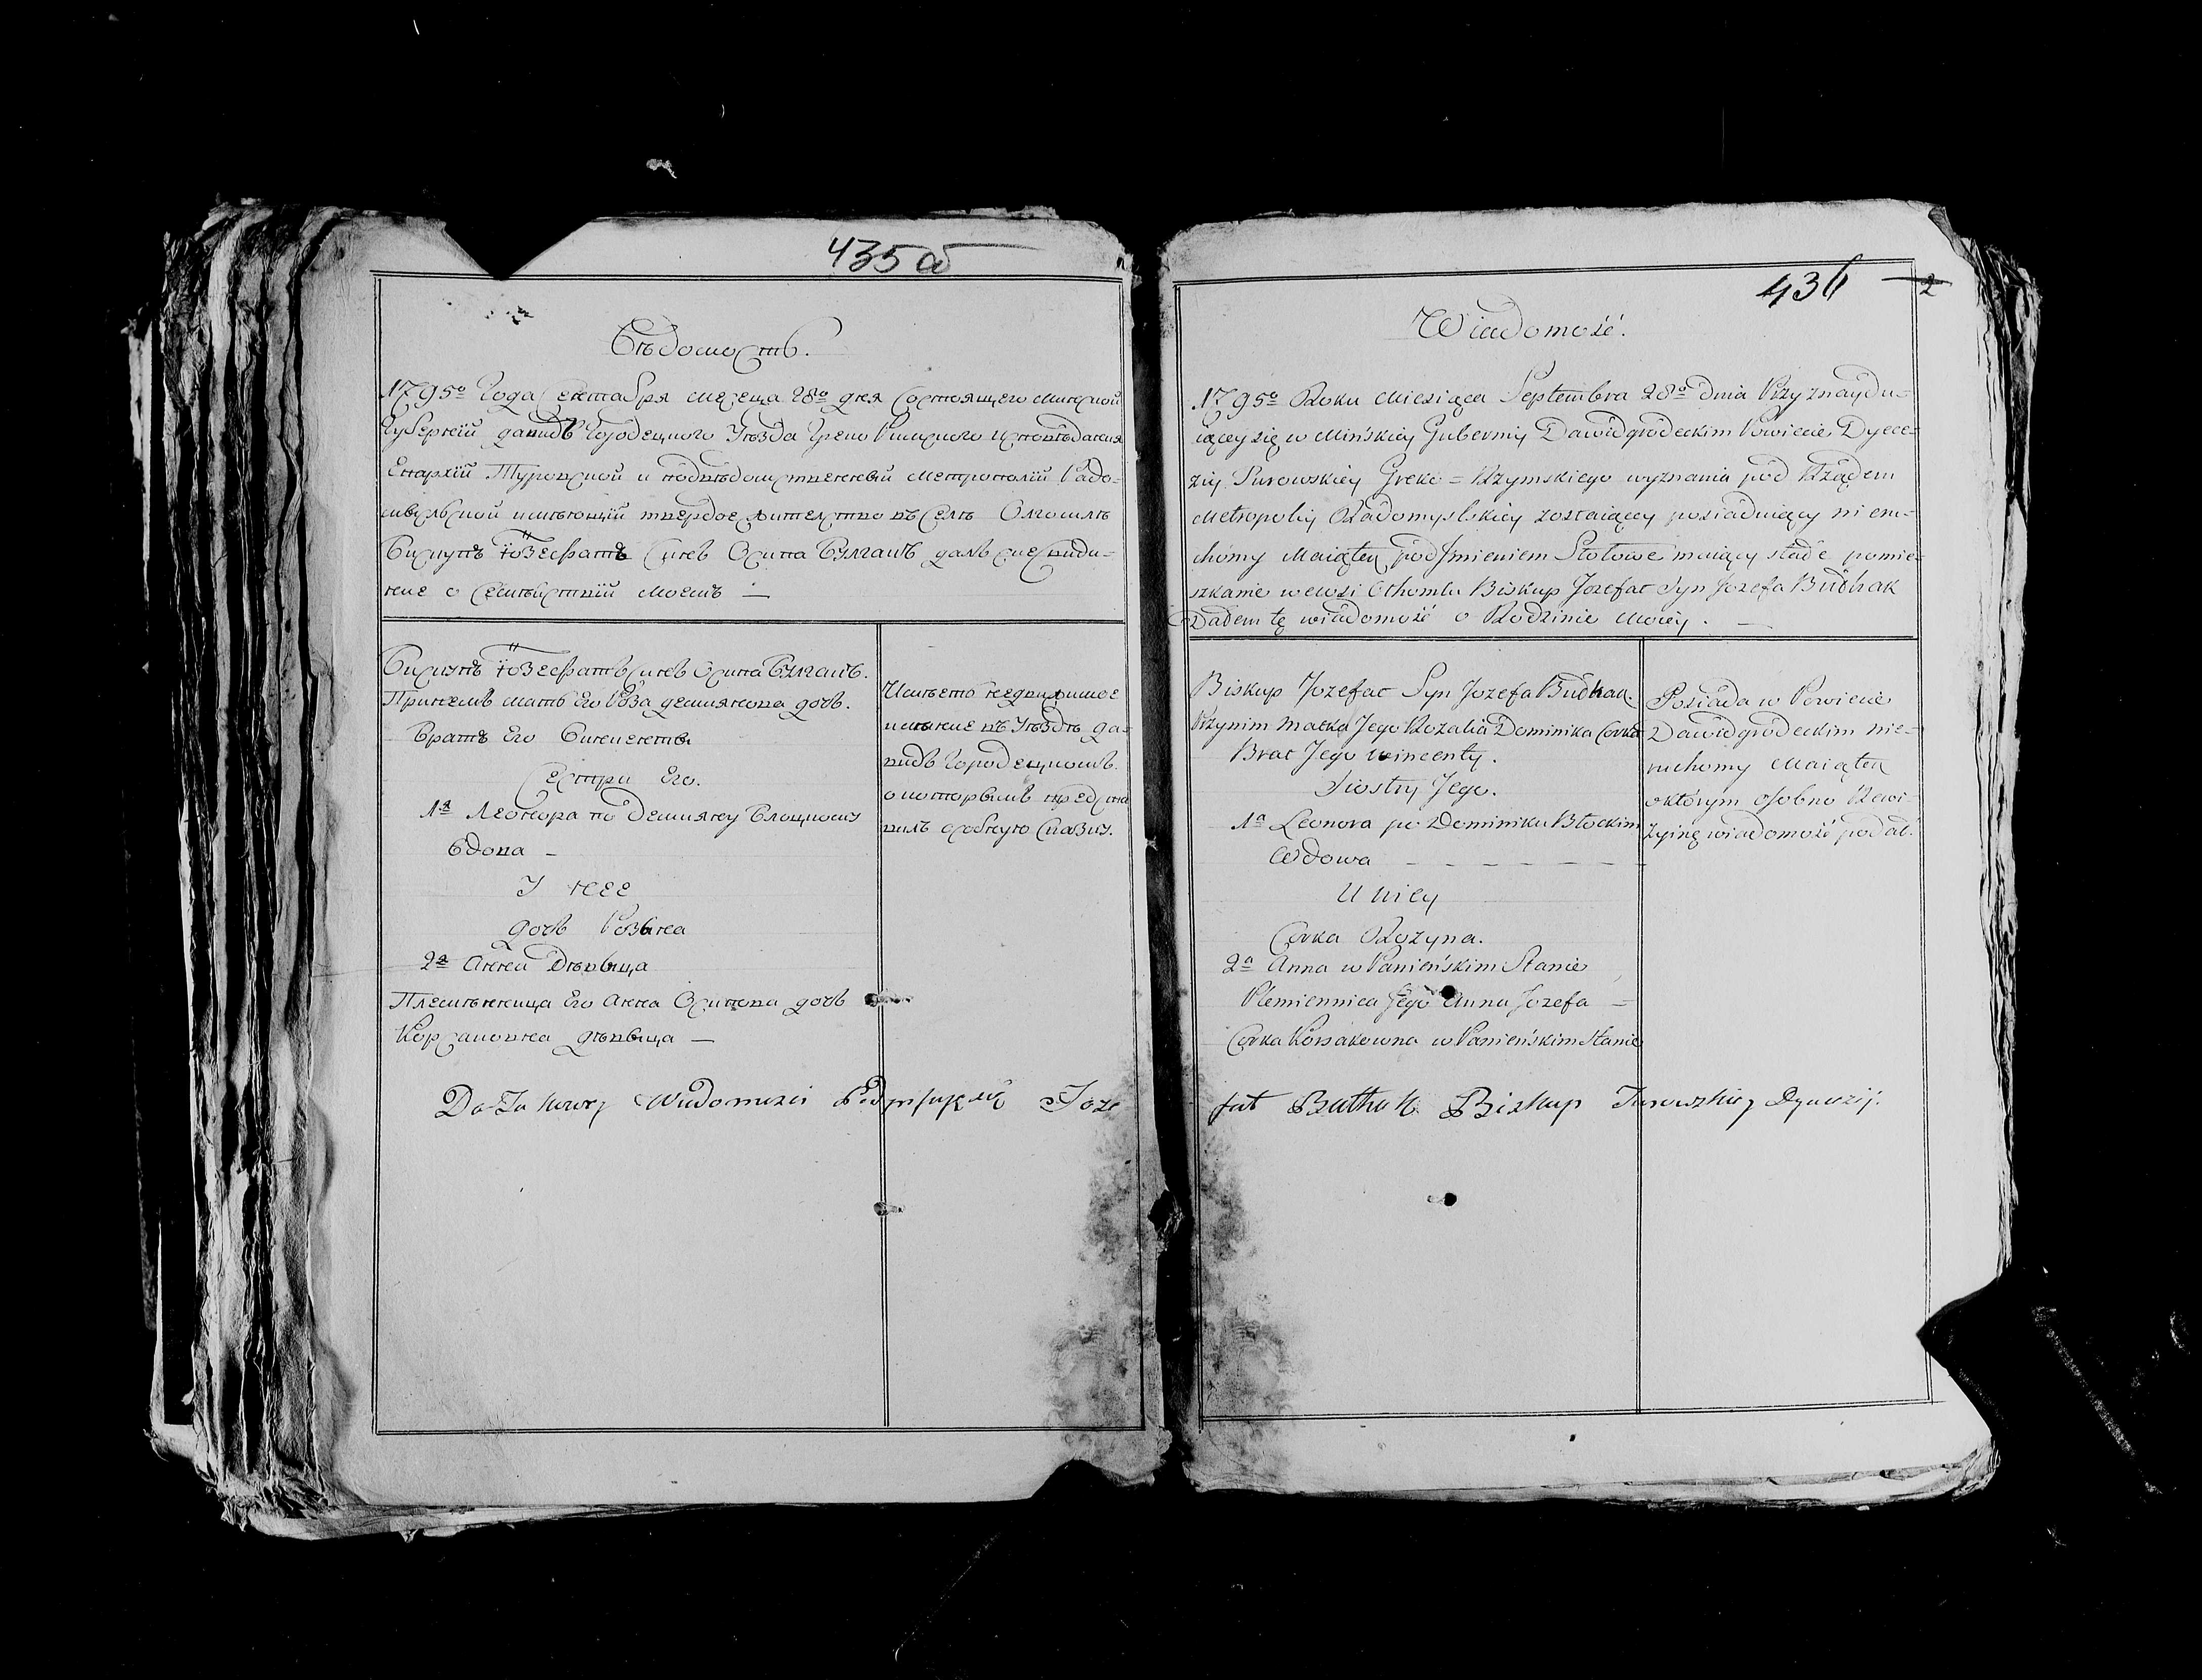 435 об
Вѣдомость.
1795о Года Сентабря месеца 28о дня Состоящего Минской
Губернїй давидъ Городецкого Уѣзда Греко Римского исповѣдания
Епархїй Туровской и подвѣдомственней метрополїй Радо-
мысльской имѣющїй твердое жителство въ Селѣ Олгомлѣ
Бискупъ Їозефатъ Синъ Осипа Булгакъ далъ сие види-
ние о Семѣйствїй моемъ —
Бискупъ Їозефатъ Синъ Осипа Булгакъ.
При немъ мать Его Роза демианова дочь.
Братъ Его Викентий
Сестри Его.
1я Леонора по Демияну Блоцкому
Вдова -
У нее
дочь Розина
2я Анна Дѣвица
Племѣнница Его Анна Осипова дочь
Корсаковна дѣвица —
Имѣетъ недвижимое
имѣние въ Уѣздѣ да-
видъ Городецкомъ.
о которымъ предста
вилъ особную Сказку.
Do Takowey Wiadomosci Podpisuję się Joze
436
2
Wiadomość.
1795o Roku Miesiąca Septembra 28o dnia Przyznaydu-
iącey się w Mińskiey Gubernij Dawidgródeckim Powiecie Dyece-
zij Turowskiey Greko = Rzymskiego wyznania pód Rządem
Metropolij Radomyslskiey zostaiący posiaduiący nieru-
chomy Maiątek pod Jmieniem Stołowe maiący stałe pomie-
szkanie we wsi Olhomlu Biskup Jozefat Syn Jozefa Bułhak
Dałem tę wiadomość o Rodzinie Moiey. —
Biskup Jozefat Syn Jozefa Bułhak.
Przynim Matka Jego Rozalia Dominika Corka
Brat Jego Wincenty.
Siostry Jego.
1a Leonora po Dominiku Błockim
Wdowa - - - - - -
U niey
Corka Rozyna.
2a Anna w Panieńskim Stanie
Plemiennica Jego Anna Jozefa =
Corka Korsakowna w Panieńskim Stanie
Posiada w Powiecie
Dawidgródeckim nie-
ruchomy Maiątek
o którym osobno Rewi-
zyinę wiadomość podał.
fat Bułhak Biskup Turowskiey Dyecezij.